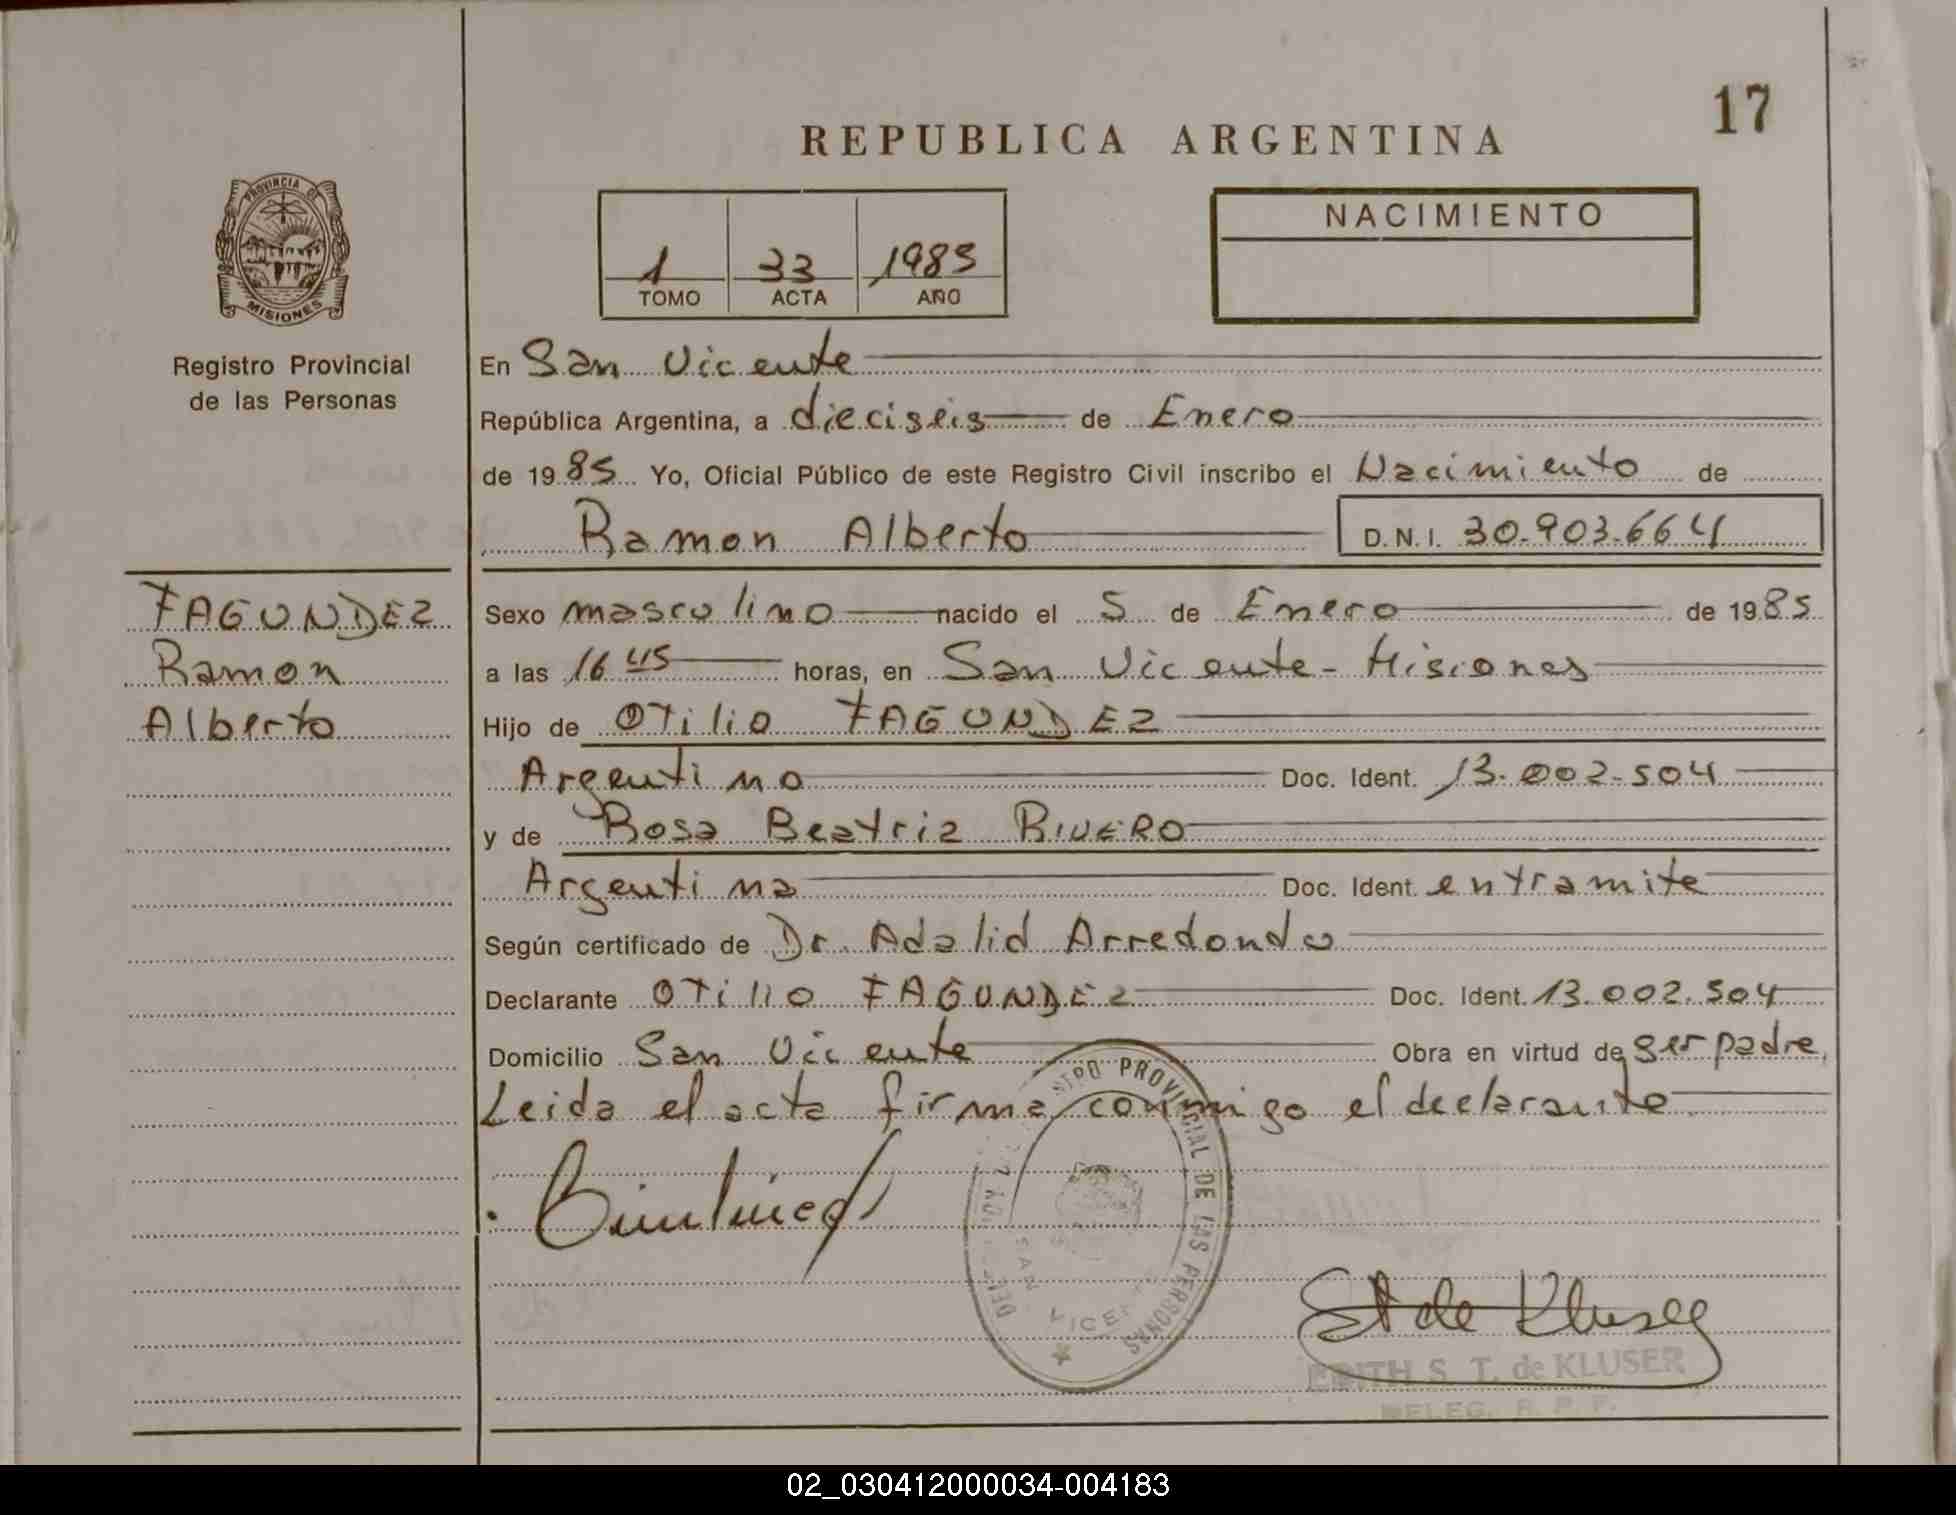 17
REPUBLICA ARGENTINA
PROVINCIA DE
MISIONES
Registro Provincial
de las Personas
1 33 1985
TOMO ACTA AÑO
NACIMIENTO
En San Vicente
República Argentina, a dieciseis de Enero
de 1985 Yo, Oficial Público de este Registro Civil inscribo el Nacimiento de
Ramon Alberto D.N.I. 30.903.664
FAGUNDEZ
Ramon
Alberto
Sexo masculino nacido el 5 de Enero de 1985
a las 16 45 horas, en San Vicente - Misiones
Hijo de Otilio FAGUNDEZ
Argentino Doc. Ident. 13.002.504
y de Rosa Beatriz RIVERO
Argentina Doc. Ident. entramite
Según certificado de Dr. Adalid Arredondo
Declarante Otilio FAGUNDEZ Doc. Ident. 13.002.504
Domicilio San Vicente Obra en virtud de ser padre,
Leida el acta firma conmigo el declarante
PROVINCIAL DE LAS PERSONAS
SAN VICENTE
E T de Kluser
EDITH S. T. de KLUSER
DELEG. R. P. P.
02_030412000034-004183